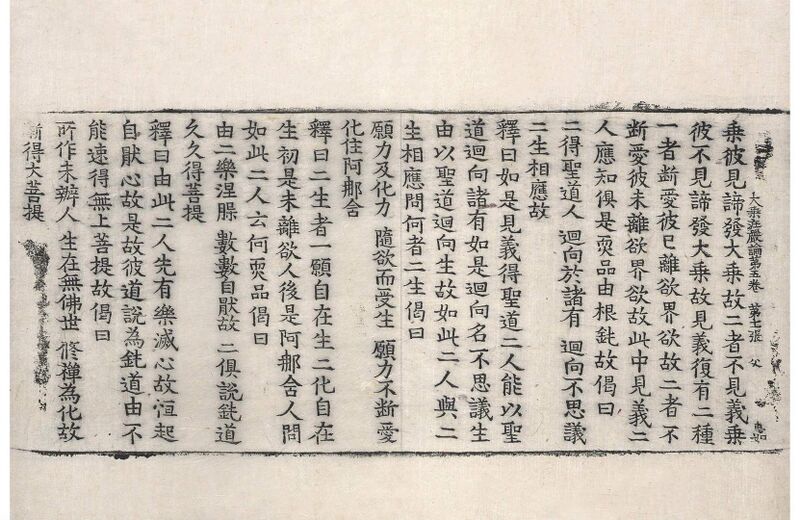 大乘莊嚴論第五卷 第七張 父
乗彼見諦發大乗故二者不見義乗
彼不見諦發大乗故見義復有二種
一者断愛彼已離欲界欲故二者不
断愛彼未離欲界欲故此中見義二
人應知俱是耎品由根鈍故偈曰
二得聖道人 迴向於諸有 迴向不思議
二生相應故
釋曰如是見義得聖道二人能以聖
道迴向諸有如是迴向名不思議生
由以聖道迴向生故如此二人與二
生相應問何者二生偈曰
願力及化力 隨欲而受生 願力不断愛
化住阿郍舍
釋曰二生者一願自在生二化自在
生初是未離欲人後是阿郍舍人問
如此二人云何耎品偈曰
由二樂涅槃 數數自猒故 二俱說鈍道
久久得菩提
釋曰由此二人先有樂滅心故恒起
自猒心故是故彼道說為鈍道由不
能速得無上菩提故偈曰
所作未辦人 生在無佛世 修禪為化故
漸得大菩提